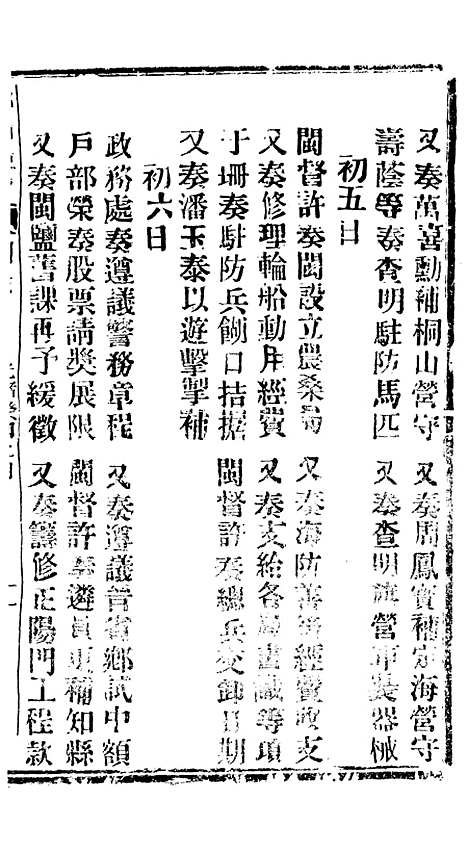 又奏萬喜勳補桐山營守 又奏周鳳寶補定海營守
壽蔭等奏查明駐防馬匹 又奏查明旗營軍裝器械
初五日
閩督許奏閩設立農桑局 又奏海防善後經費收支
又奏修理輪船動用經費 又奏支給各局畫識等項
于珊奏駐防兵餉口拮据 閩督許奏總兵交卸日期
又奏潘玉泰以遊擊掣補
初六日
政務處奏遵議警務章程 又奏遵議晉省鄉試中額
戶部榮奏股票請獎展限 閩督許奏遴員更補知縣
又奏閩鹽舊課再予緩徵 又奏籌修正陽門工程款